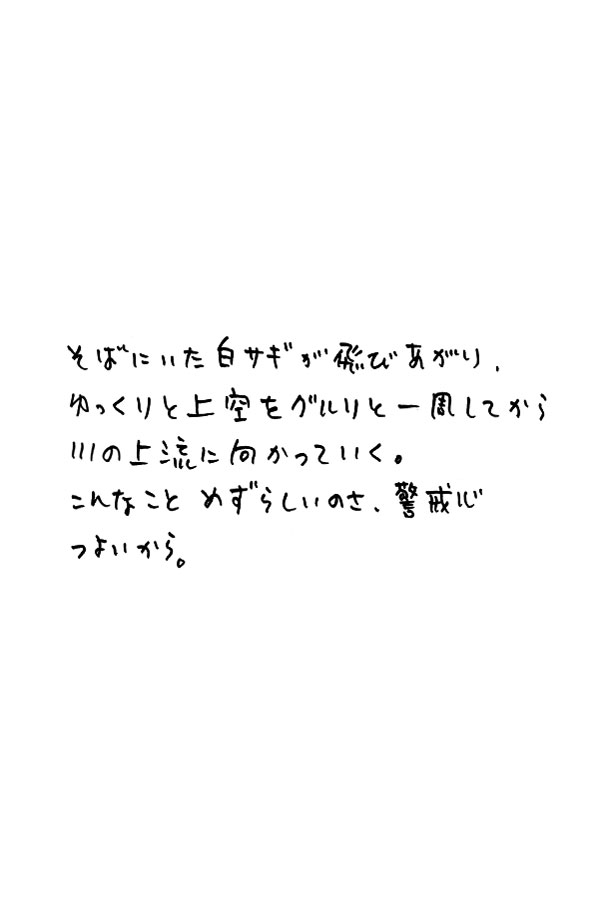 そばにいた白サギが飛びあがり、
ゆっくりと上空をグルリと一周してから
川の上流に向かっていく。
こんなこと めずらしいのさ、警戒心
つよいから。